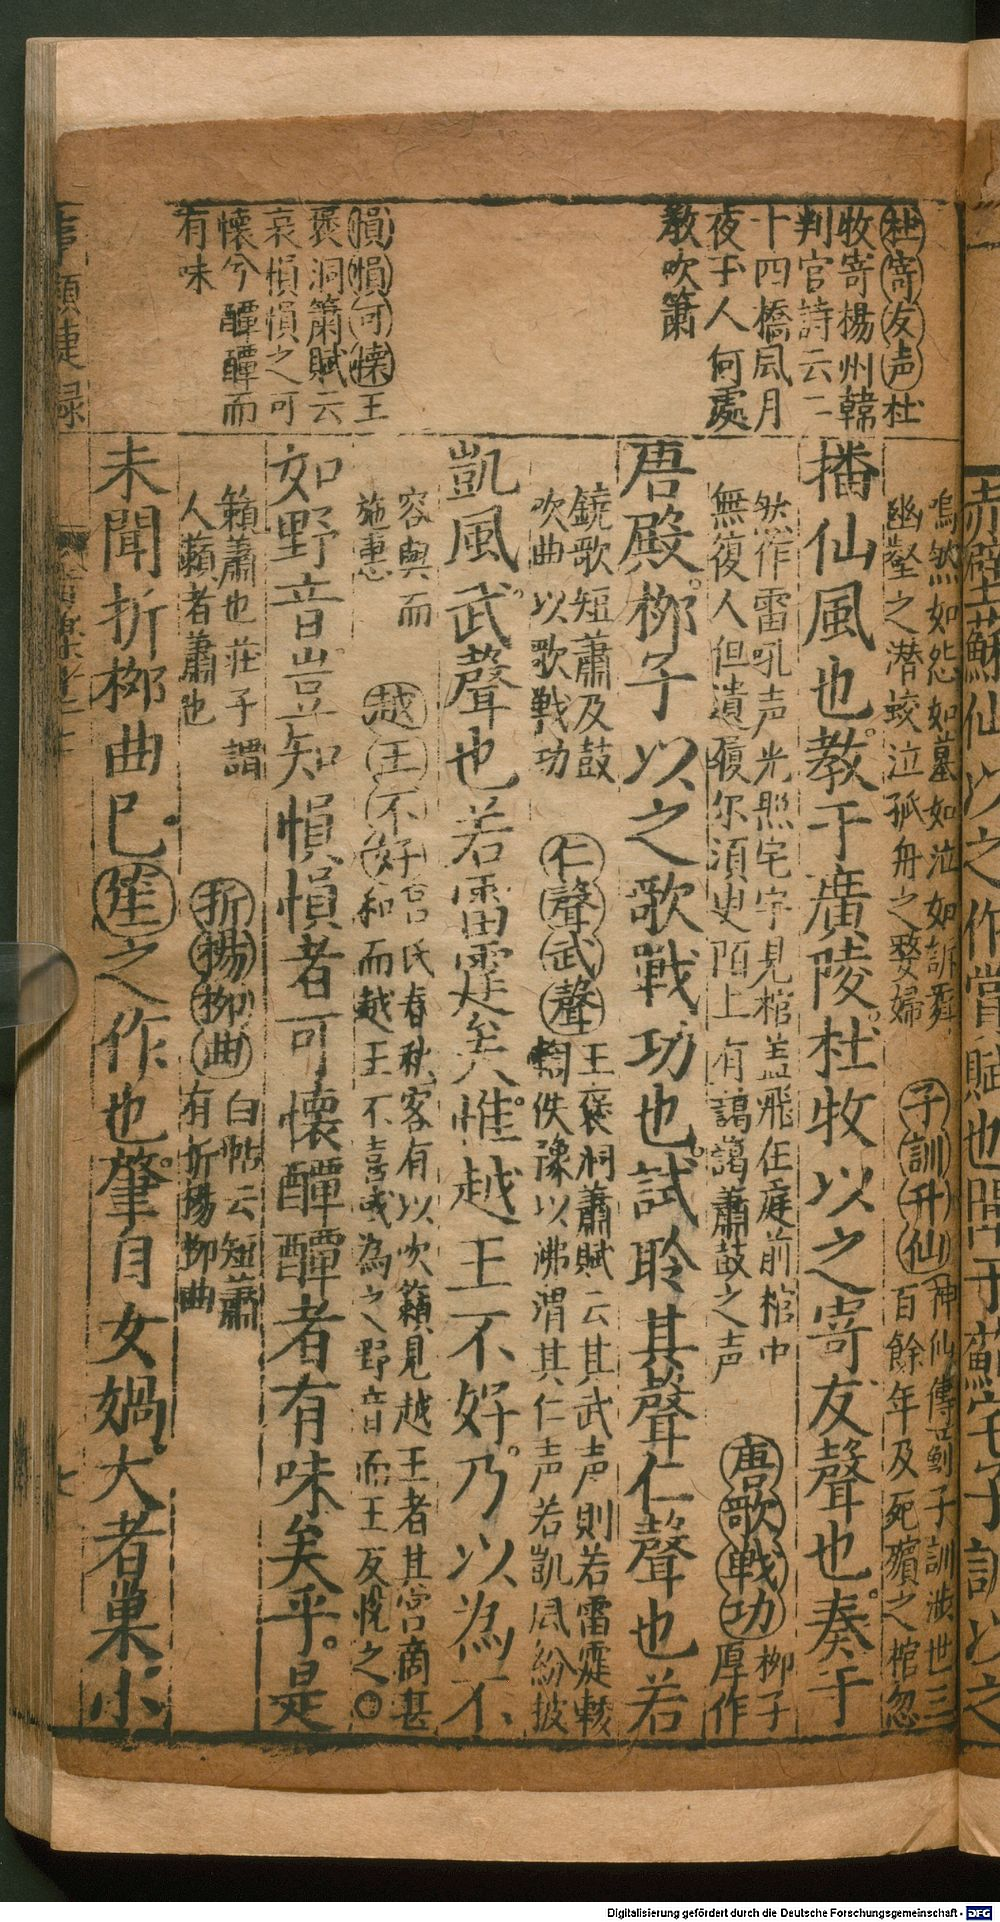 杜寄友声杜
牧寄楊州韓
判官詩云二
十四橋風月
夜玉人何處
教吹簫
愪愪可懐王
褒洞簫賦云
哀愪愪之可
懐兮醰醰而
有味
嗚然如怨如慕如泣如訴舞
幽壑之潜蛟泣孤舟之嫠婦
子訓升仙神仙傳薊子訓渉世三
百餘年及死殯之棺忽
播仙風也教于廣陵杜牧以之寄友聲也奏于
然作雷吼声光照宅宇見棺盖飛在庭前棺中
無復人但遺履尔須臾陌上有謁謁蕭鼓之声
唐歌戦功柳子
厚作
唐殿栁子以之歌戰功也試聆其聲仁聲也若
鐃歌短蕭及鼓
吹曲以歌戦功
仁聲武聲王褒洞蕭賦云其武声則若雷霆輘
輷佚豫以沸渭其仁声若凱風紛披
凱風武聲也若雷霆矣惟越王不好乃以為不
容與而
施惠
越王不好吕氏春秋客有以吹籟見越王者其宮商甚
和而越王不喜或為之野音而王反悦之
如野音豈知愪愪者可懐醰醰者有味矣乎是
籟蕭也荘子謂
人籟者蕭也
折楊栁曲白帖云短蕭
有折楊栁曲
未聞折栁曲已笙之作也肇自女媧大者巢小
事類捷録
七
赤壁蘇仙以之作賞賦也
子訓以之
Digitalisierung gefördert durch die Deutsche Forschungsgemeinschaft - DFG